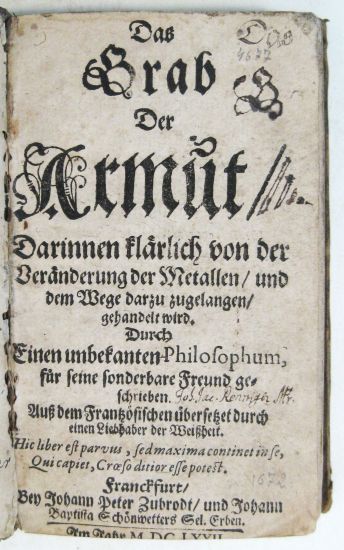 Das
4677
Grab
Der
Armůt/
Darinnen klärlich von der
Veränderung der Metallen/ und
dem Wege darzu zugelangen/
gehandelt wird.
Durch
Einen unbekanten Philosophum,
für seine sonderbare Freund ge-
schrieben.
Auß dem Frantzösischen übersetzet durch
einen Liebhaber der Weißheit.
Hic liber est parvus, sed maxima continet in se,
Qui capiet, Crœso ditior esse potest.
1672
Franckfurt/
Bey Johann Peter Zubrodt/ und Johann
Baptista Schönwetters Sel. Erben.
Im Jahr M DC LXXII